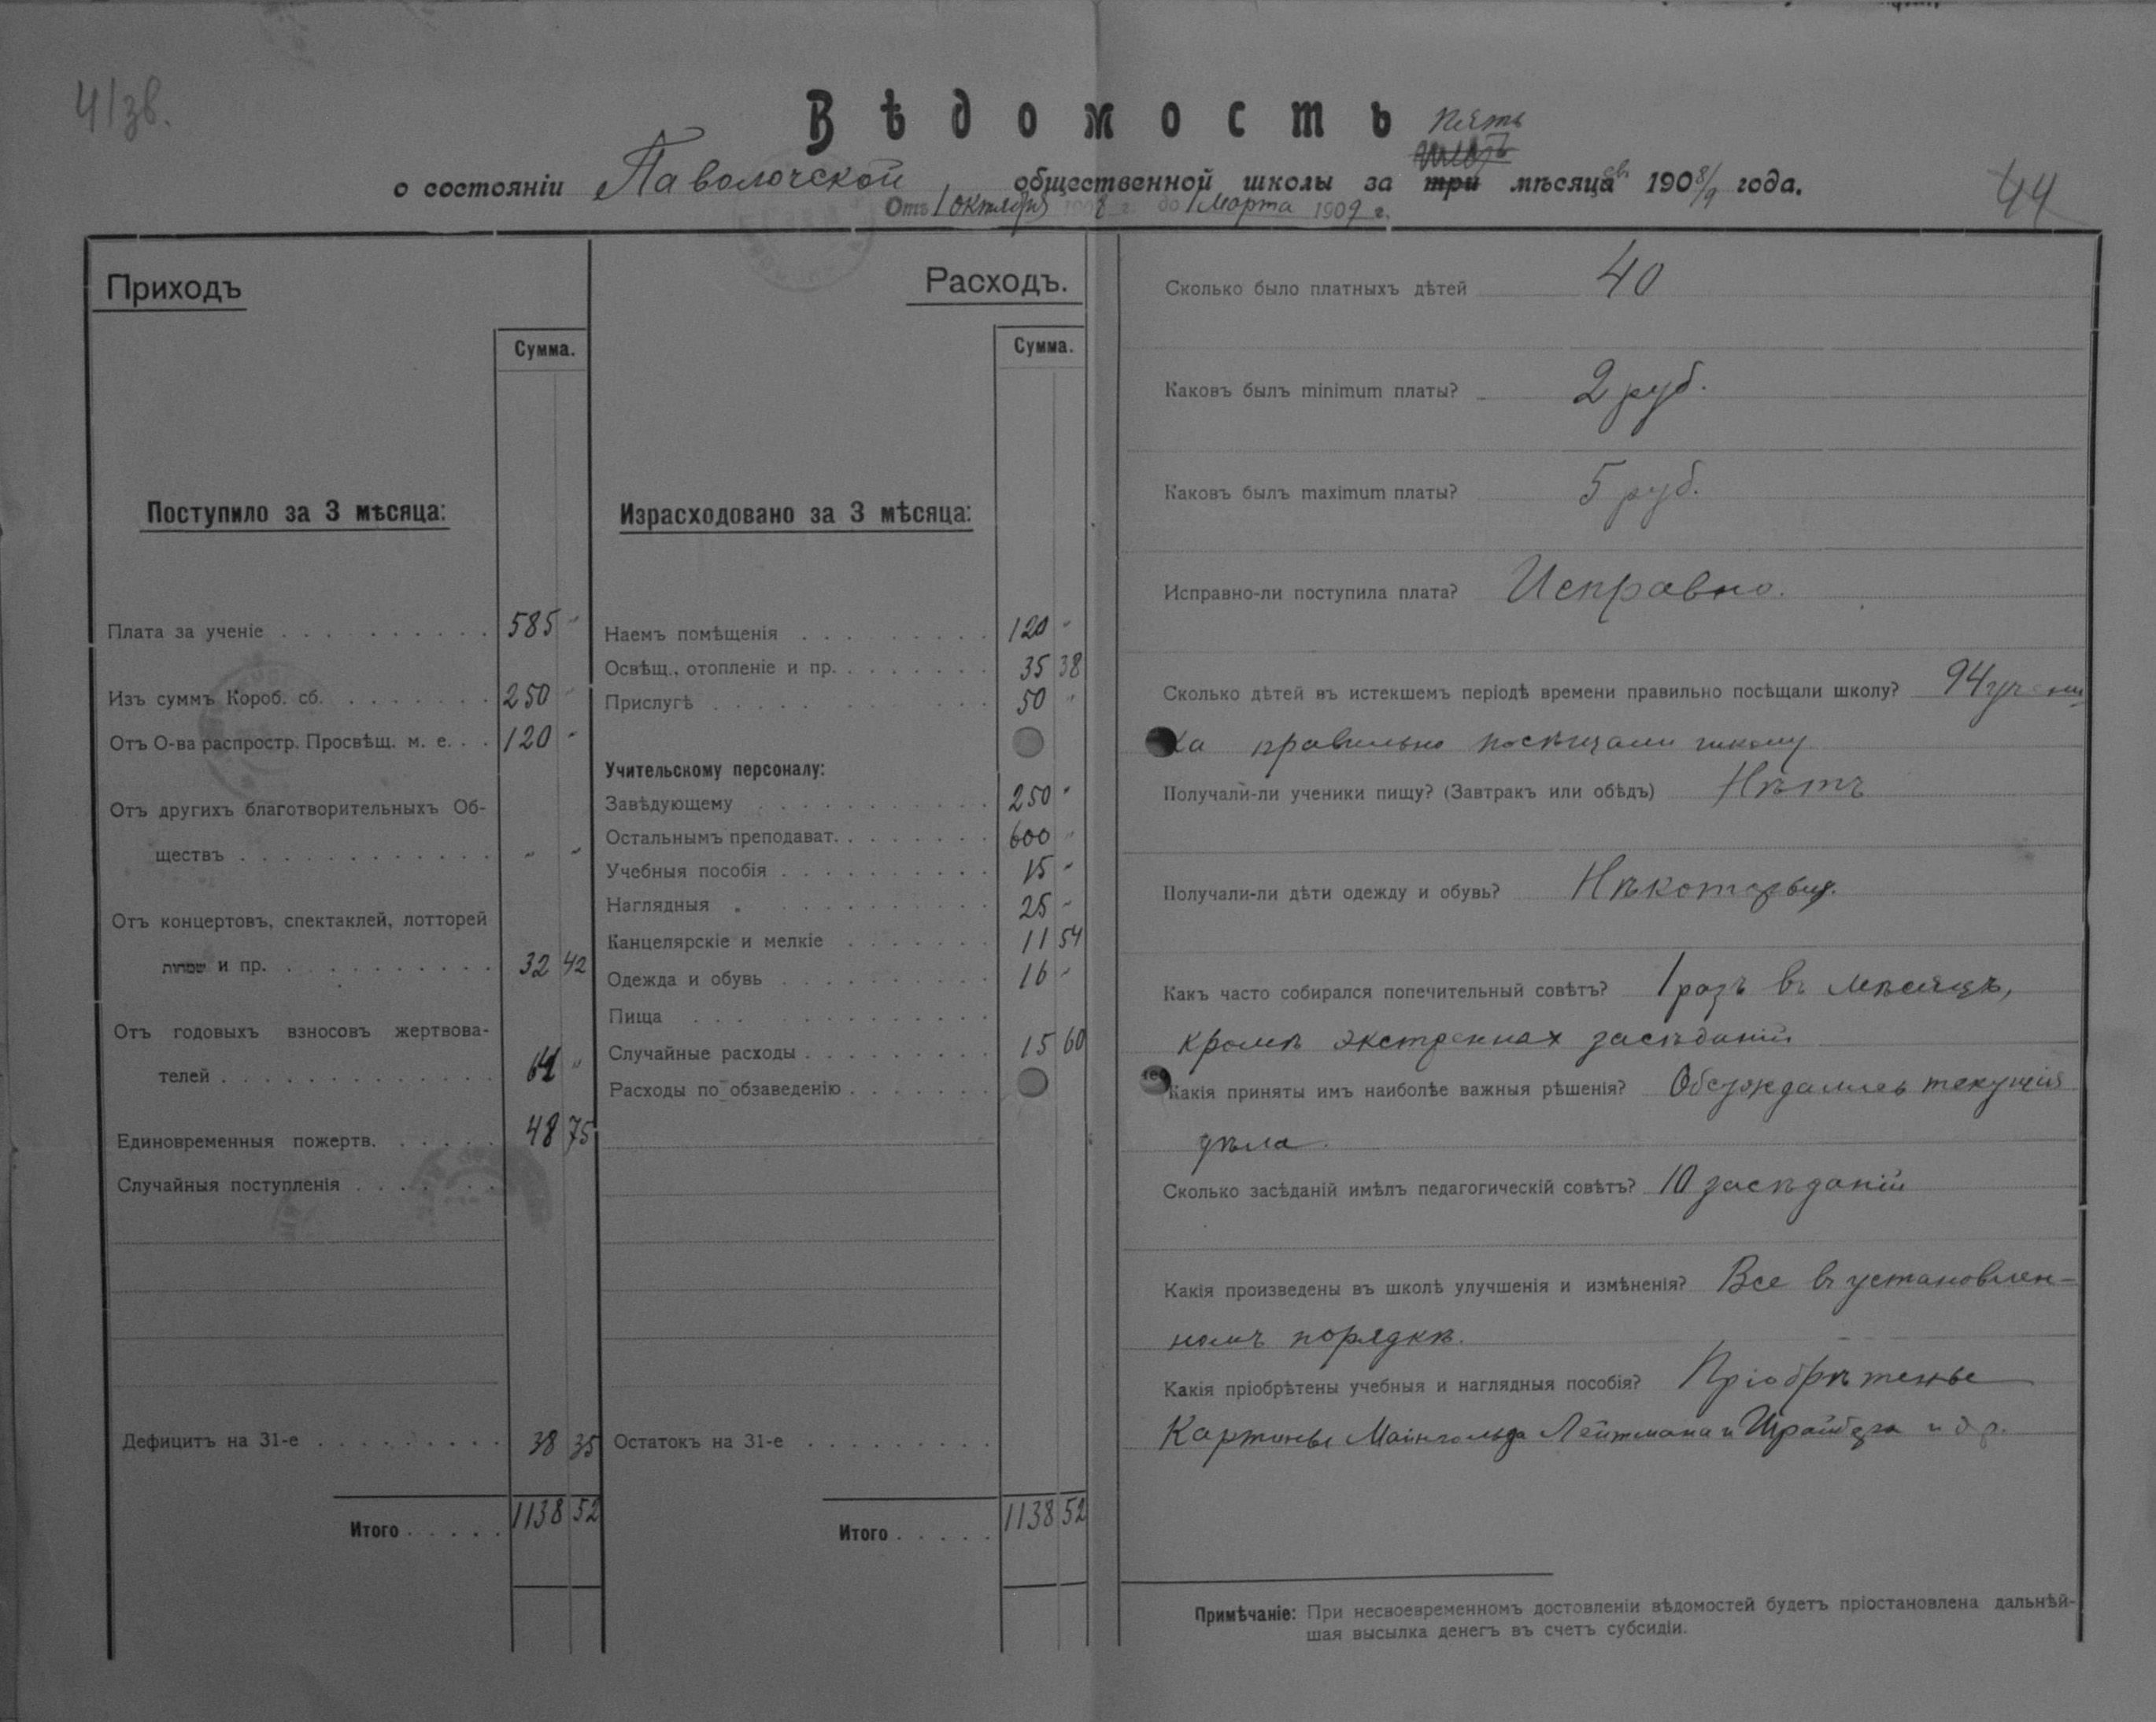 41зв.
Вѣдомость
пять
о состояніи Паволочской общественной школы за три мѣсяцевъ 1908/9 года.
Отъ 1 октября 1908 г. до 1 марта 1909 г.
44
Приходъ
Сумма.
Поступило за 3 мѣсяца:
Плата за ученіе 585 "
Изъ суммъ Короб. сб. 250 "
Отъ О-ва распростр. Просвѣщ. м. е. 120 "
Отъ другихъ благотворительныхъ Об-
ществъ " "
Отъ концертовъ, спектаклей, лотторей
שמחות и пр. 32 42
Отъ годовыхъ взносовъ жертвова-
телей 64 "
Единовременныя пожертв. 48 75
Случайныя поступленія
Дефицитъ на 31-е 38 35
Итого 1138 52
Расходъ.
Сумма.
Израсходовано за 3 мѣсяца:
Наемъ помѣщенія 120 "
Освѣщ., отопленіе и пр. 35 38
Прислугѣ 50 "
Учительскому персоналу:
Завѣдующему 250 "
Остальнымъ преподават. 600 "
Учебныя пособія 15 "
Наглядныя „ 25 "
Канцелярскіе и мелкіе 11 54
Одежда и обувь 16 "
Пища
Случайные расходы 15 60
Расходы по обзаведенію
Остатокъ на 31-е
Итого 1138 52
Сколько было платныхъ дѣтей 40
Каковъ былъ minimum платы? 2 руб.
Каковъ былъ maximum платы? 5 руб.
Исправно-ли поступила плата? Исправно.
Сколько дѣтей въ истекшемъ періодѣ времени правильно посѣщали школу? 94 учени
ка правильно посѣщали школу
Получали-ли ученики пищу? (Завтракъ или обѣдъ) Нѣтъ
Получали-ли дѣти одежду и обувь? Нѣкоторыя.
Какъ часто собирался попечительный совѣтъ? 1 разъ въ мѣсяцъ,
кромѣ экстренных засѣданій
Какія приняты имъ наиболѣе важныя рѣшенія? Обсуждались текущія
дѣла.
Сколько засѣданій имѣлъ педагогическій совѣтъ? 10 засѣданій
Какія произведены въ школѣ улучшенія и измѣненія? Все въ установлен-
номъ порядкѣ.
Какія пріобрѣтены учебныя и наглядныя пособія? Пріобрѣтены
Картины Майнгольда Лейтмана и Шрайбера и др.
Примѣчаніе: При несвоевременномъ достовленіи вѣдомостей будетъ пріостановлена дальнѣй-
шая высылка денегъ въ счетъ субсидіи.